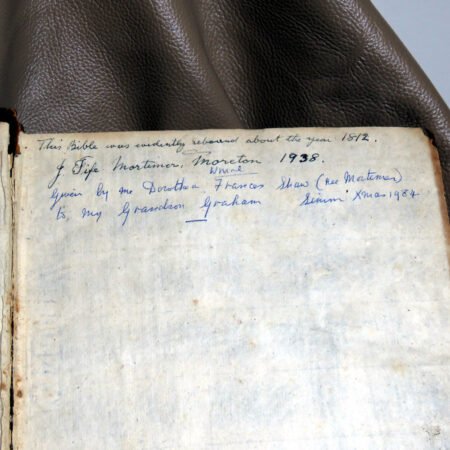 This Bible was evidently rebound about the year 1812.
J Fife Mortimer. Moreton 1938.
Wirral
Given by me Dorothea Frances Shaw (nee Mortimer)
to my Grandson Graham Simm Xmas 1984